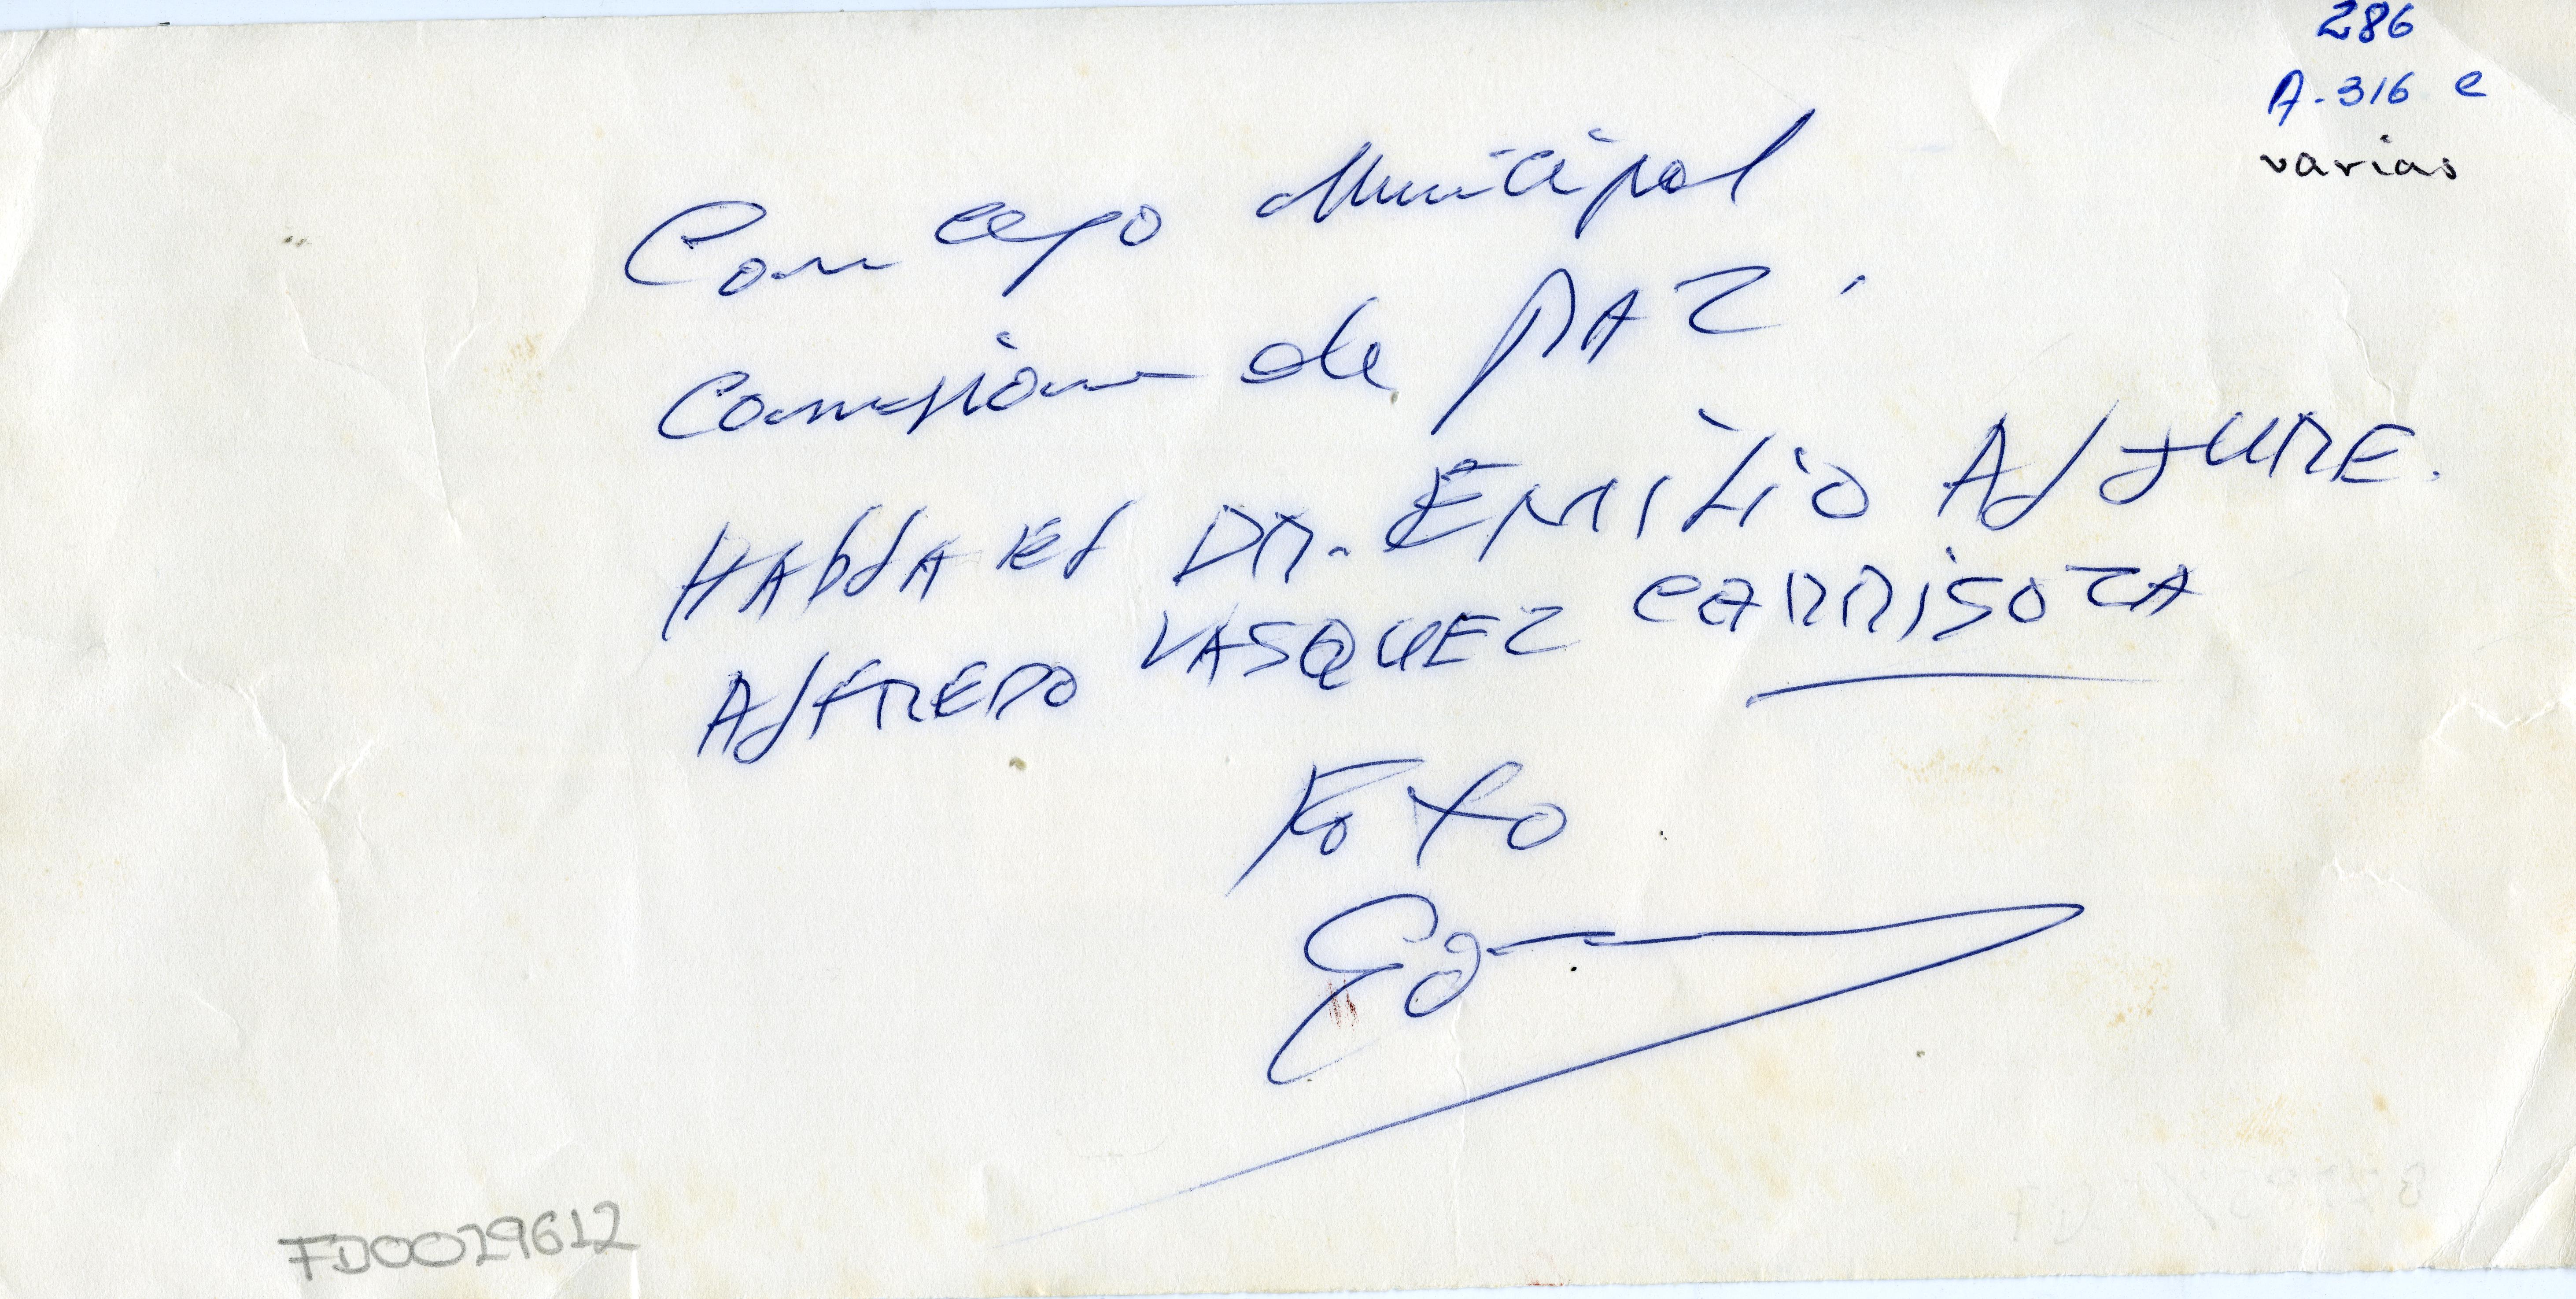 286
A-316 e
varias
Concejo Municipal
Comision de PAZ.
HAblA El DR. EMiLiO AlJURE.
AlfREDO VASQUEZ CARRISOZA
Foto
FD0029612